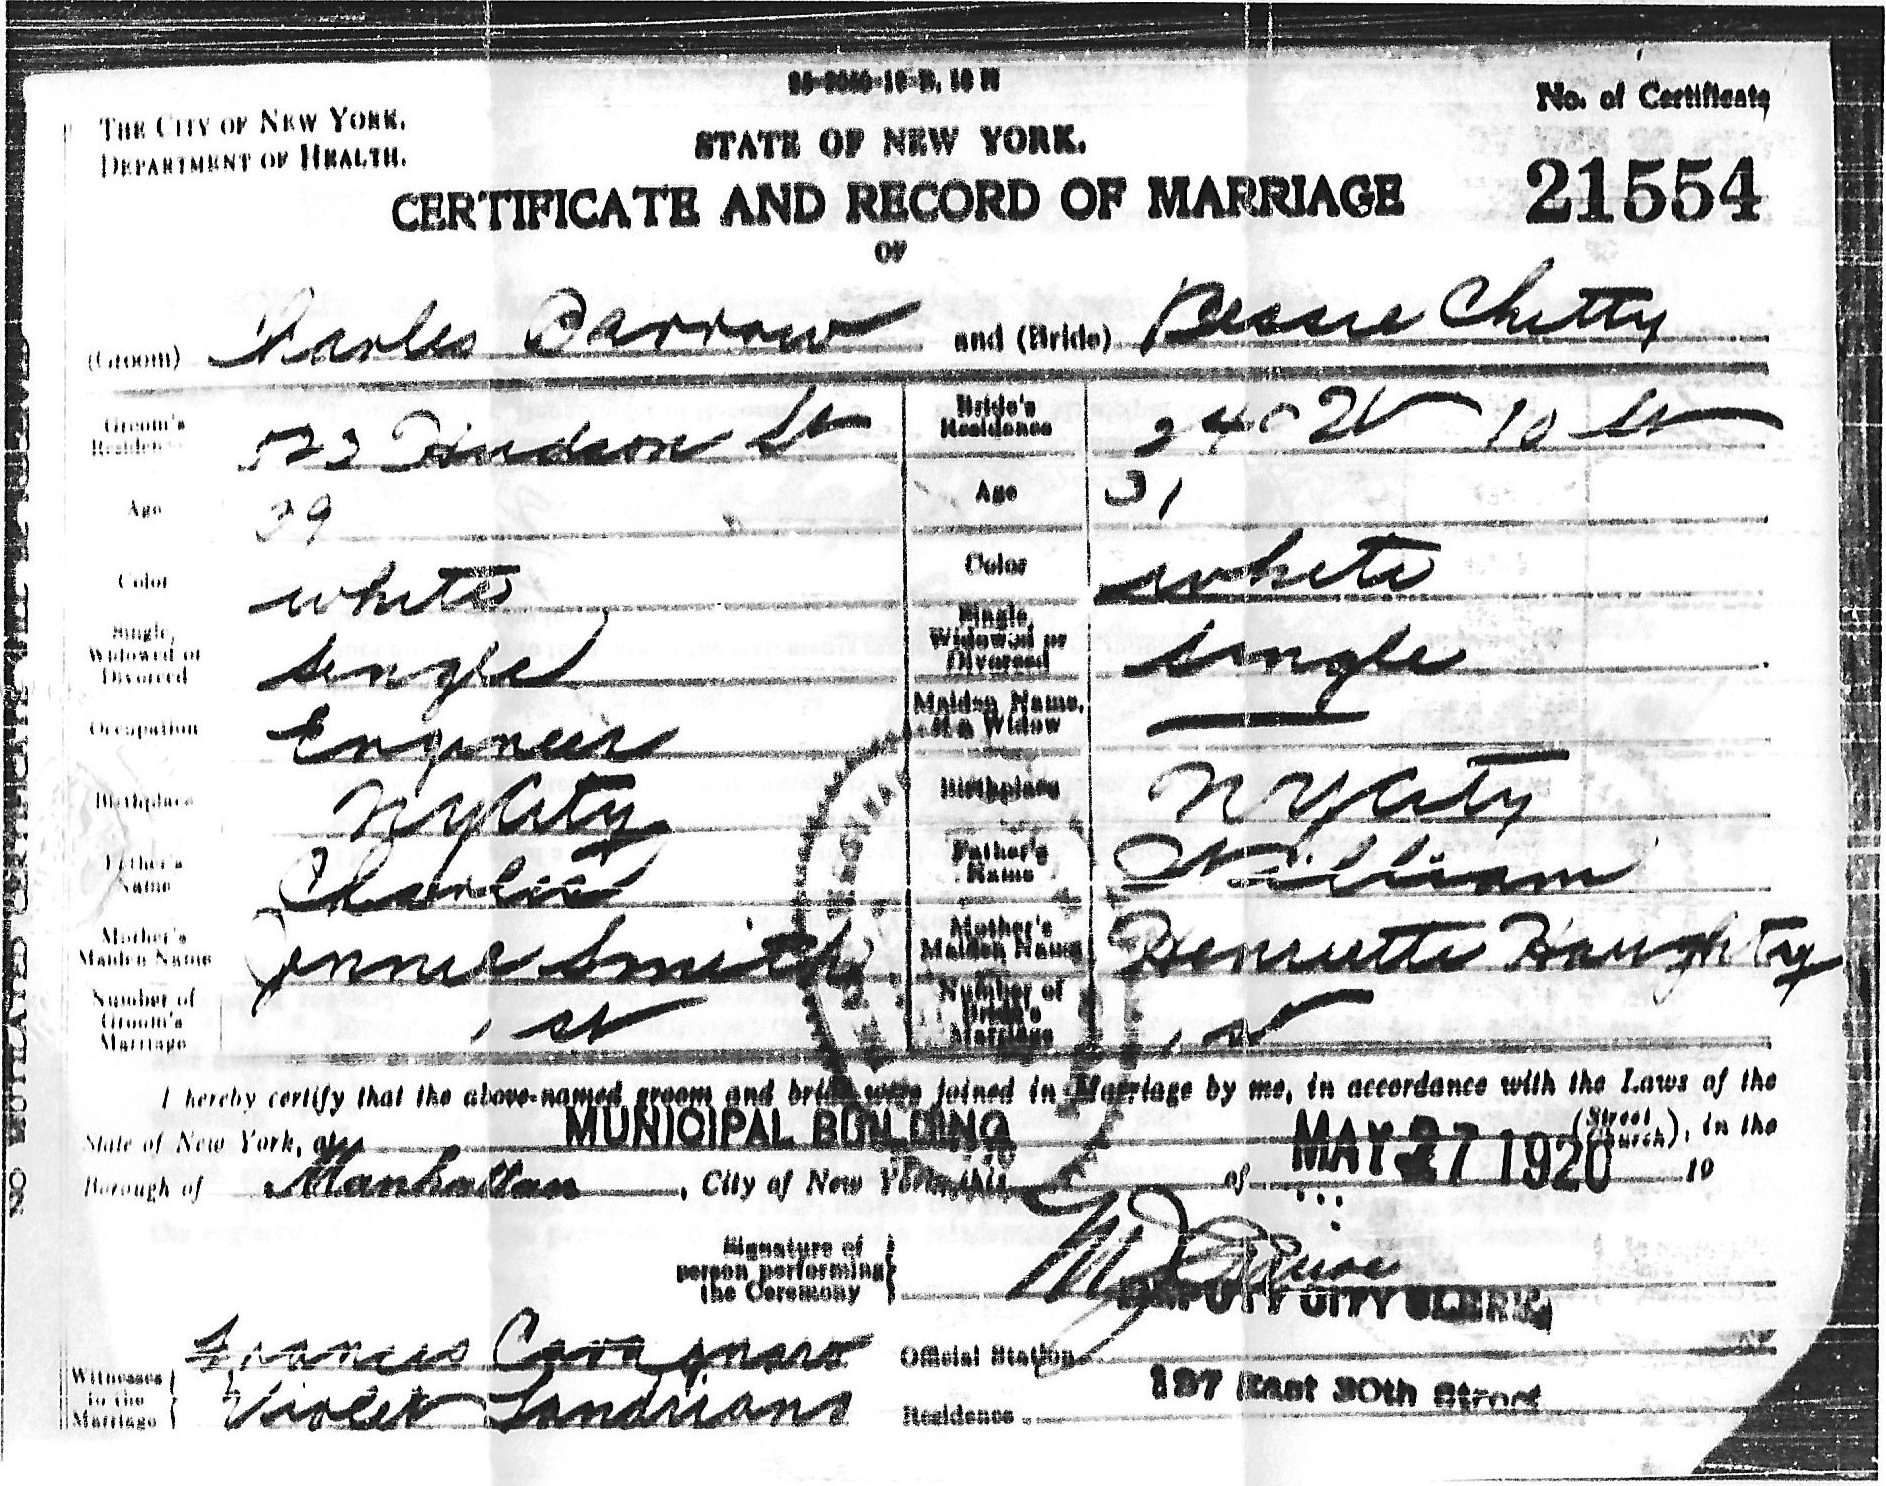 THE CITY OF NEW YORK.
DEPARTMENT OF HEALTH.
No. of Certificate
STATE OF NEW YORK.
CERTIFICATE AND RECORD OF MARRIAGE
21554
OF
(Groom) Charles Barrow and (Bride) Bessie Chitty
Groom's Residence 523 Hudson St Bride's Residence 240 W 10 St
Age 39 Age 31
Color white Color white
Single, Widowed or Divorced single Single, Widowed or Divorced single
Occupation Engineer Maiden Name, if a Widow —
Birthplace NY City Birthplace NY City
Father's Name Charles Father's Name William
Mother's Maiden Name Jennie Smith Mother's Maiden Name Henrietta Haughtay
Number of Groom's Marriage 1st Number of Bride's Marriage 1st
I hereby certify that the above-named groom and bride were joined in Marriage by me, in accordance with the Laws of the
State of New York, at MUNICIPAL BUILDING (Street Church), in the
Borough of Manhattan, City of New York, this of MAY 27 1920 19
Signature of person performing the Ceremony
DEPUTY CITY CLERK
Witnesses to the Marriage Frances Cavagnaro Official Station
Violet Landriani Residence 197 East 30th Street